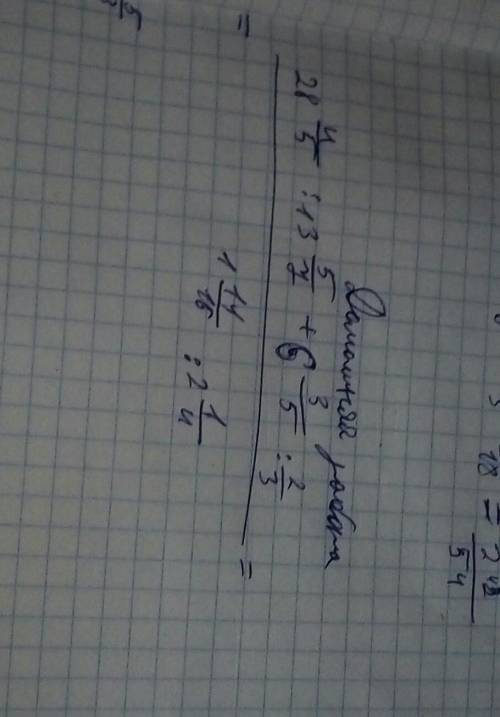 Домашняя работа
28 4/5 : 13 5/7 + 6 3/5 : 2/3
=
1 11/16 : 2 1/4
=